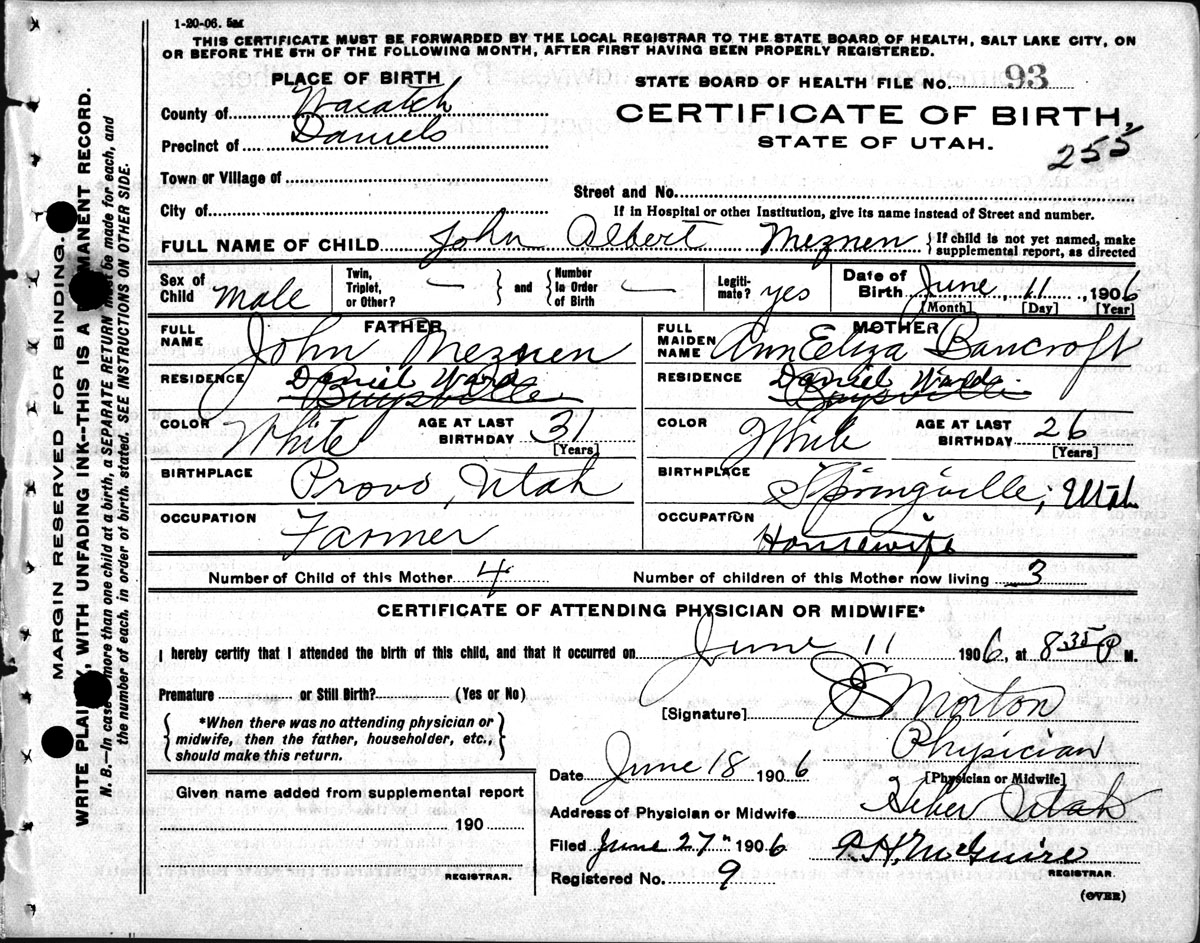 1-20-06. 5M
THIS CERTIFICATE MUST BE FORWARDED BY THE LOCAL REGISTRAR TO THE STATE BOARD OF HEALTH, SALT LAKE CITY, ON
OR BEFORE THE 5TH OF THE FOLLOWING MONTH, AFTER FIRST HAVING BEEN PROPERLY REGISTERED.
PLACE OF BIRTH
County of Wasatch
Precinct of Daniels
Town or Village of
City of
STATE BOARD OF HEALTH FILE No. 93
CERTIFICATE OF BIRTH,
STATE OF UTAH.
255
Street and No.
If in Hospital or other Institution, give its name instead of Street and number.
FULL NAME OF CHILD John Albert Meznen { If child is not yet named, make
supplemental report, as directed
Sex of Child Male
Twin, Triplet, or Other? — } and { Number In Order of Birth —
Legiti-mate? yes
Date of Birth June 11, 1906
[Month] [Day] [Year]
FATHER
FULL NAME John Meznen
RESIDENCE Daniel Ward
Buysville
COLOR White AGE AT LAST BIRTHDAY 31
[Years]
BIRTHPLACE Provo, Utah
OCCUPATION Farmer
MOTHER
FULL MAIDEN NAME Ann Eliza Bancroft
RESIDENCE Daniel Ward
Buysville
COLOR White AGE AT LAST BIRTHDAY 26
[Years]
BIRTHPLACE Springville, Utah
OCCUPATION Housewife
Number of Child of this Mother 4 Number of children of this Mother now living 3
CERTIFICATE OF ATTENDING PHYSICIAN OR MIDWIFE*
I hereby certify that I attended the birth of this child, and that it occurred on June 11 1906, at 8 35 P M.
Premature or Still Birth? (Yes or No)
{ *When there was no attending physician or
midwife, then the father, householder, etc.,
should make this return. }
Given name added from supplemental report
190
REGISTRAR.
[Signature] Morton
Physician
[Physician or Midwife]
Date June 18 1906
Address of Physician or Midwife Heber Utah
Filed June 27" 1906 P.H. McGuire
REGISTRAR.
Registered No. 9
(OVER)
MARGIN RESERVED FOR BINDING.
WRITE PLAINLY, WITH UNFADING INK--THIS IS A PERMANENT RECORD.
N. B.—In case more than one child at a birth, a SEPARATE RETURN must be made for each, and
the number of each, in order of birth, stated. SEE INSTRUCTIONS ON OTHER SIDE.